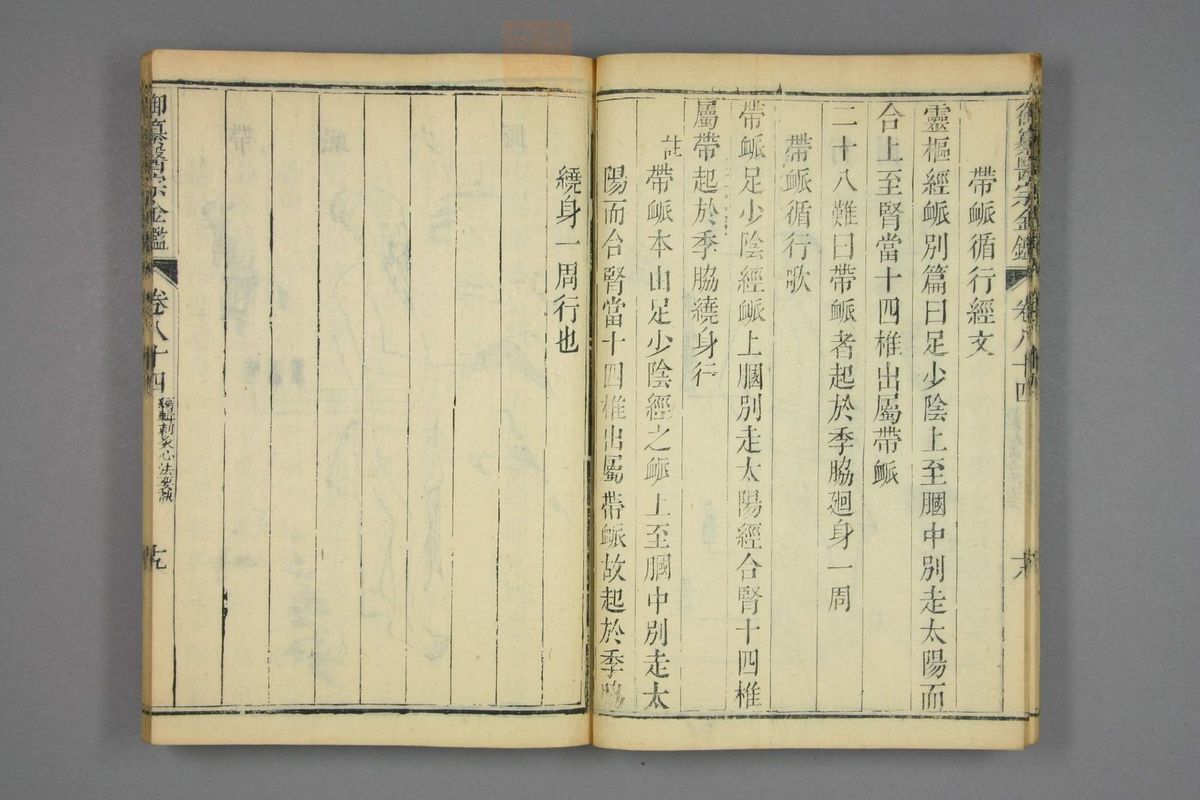 御纂醫宗金鑑 卷八十四 十八
帶䘑循行經文
靈樞經䘑別篇曰足少陰上至膕中別走太陽而
合上至腎當十四椎出屬帶䘑
二十八難曰帶䘑者起於季脇廻身一周
帶䘑循行歌
帶䘑足少陰經䘑上膕別走太陽經合腎十四椎
屬帶起於季脇繞身行
註 帶䘑本由足少陰經之䘑上至膕中別走太
陽而合腎當十四椎出屬帶䘑故起於季脇
繞身一周行也
御纂醫宗金鑑 卷八十四 編輯刺灸心法要訣 十九